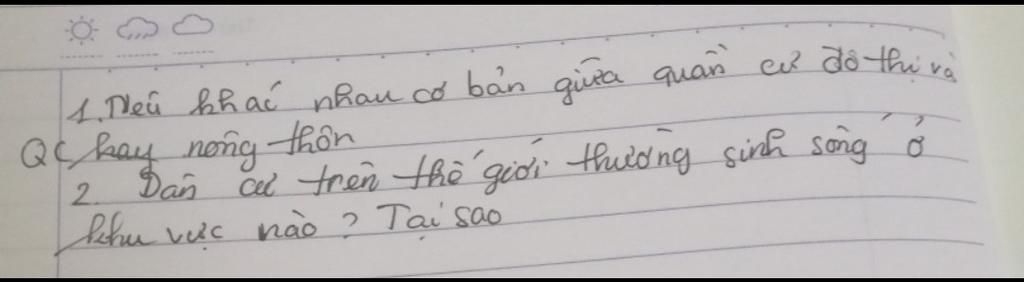 1. Nêu khác nhau cơ bản giữa quần cư đô thị và
QC hay nông thôn
2. Dân cư trên thế giới thường sinh sống ở
khu vực nào? Tại sao